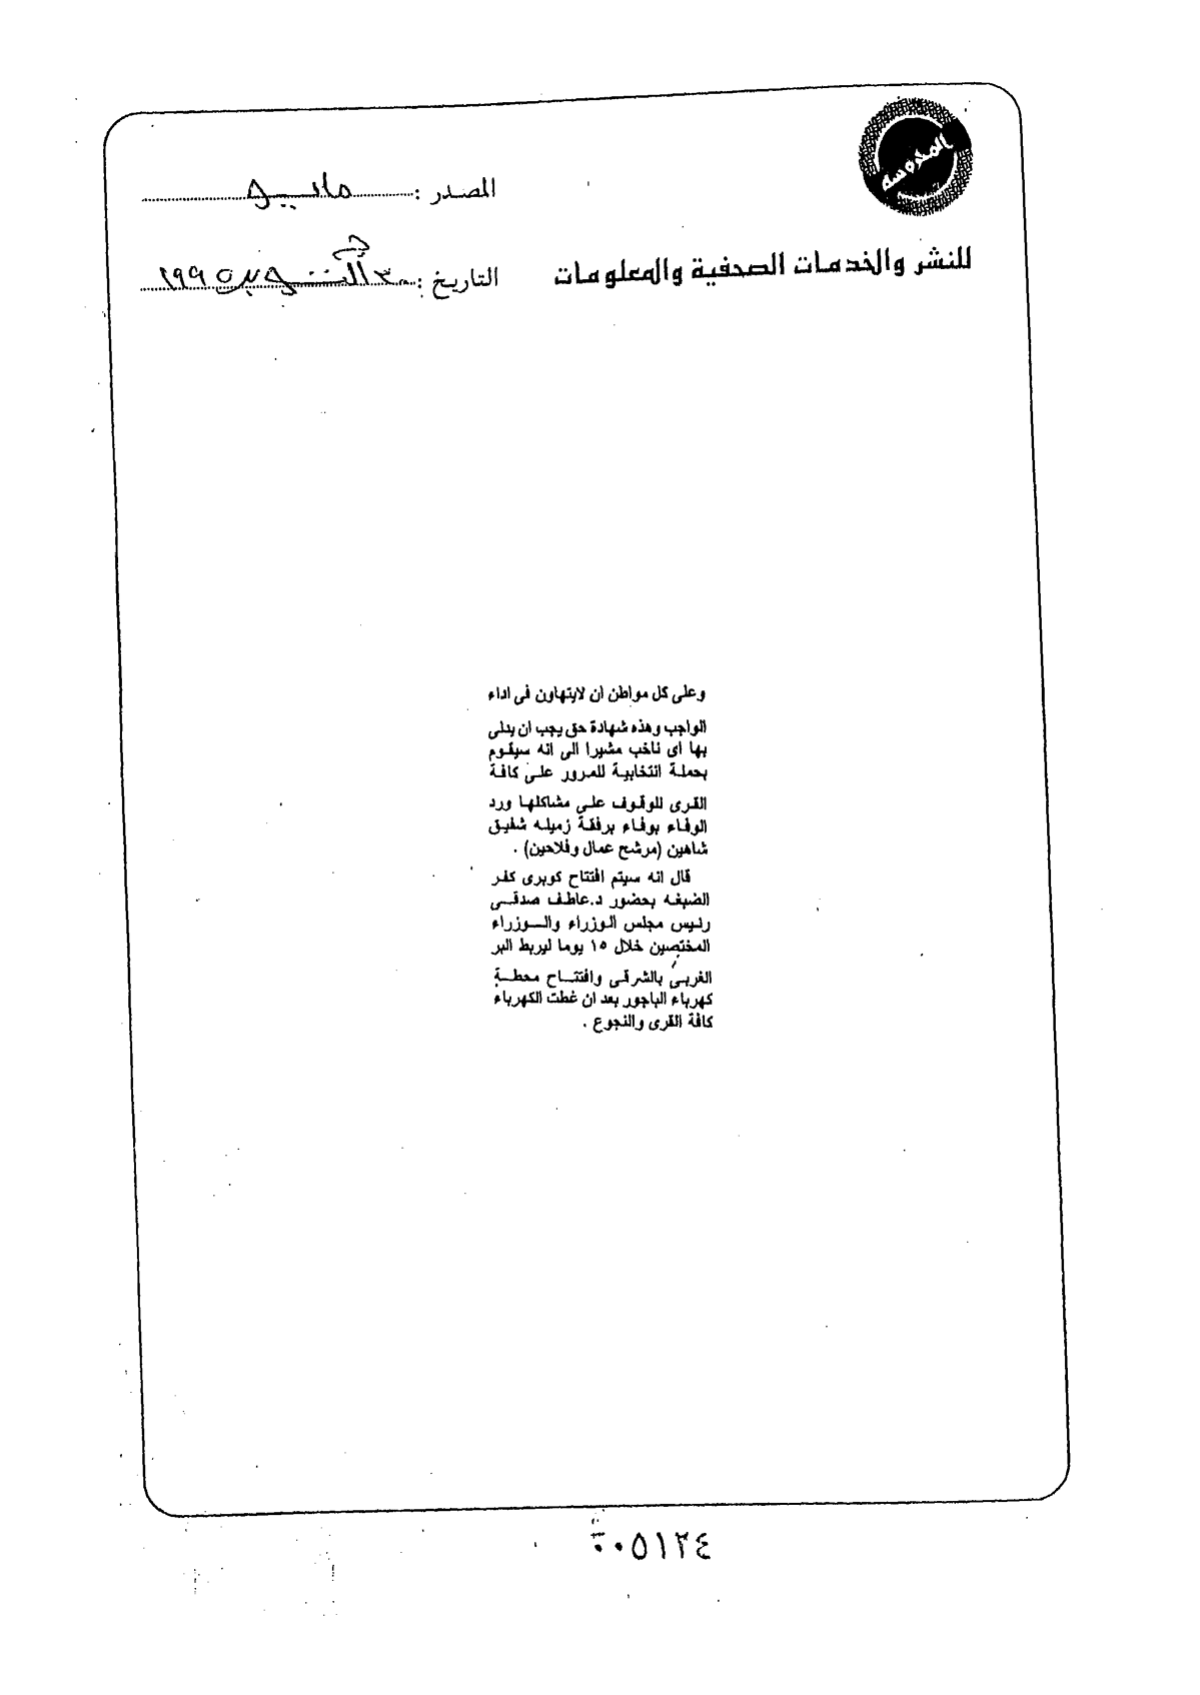 المحروسة
للنشر والخدمات الصحفية والمعلومات
المصدر : مايو
التاريخ : ٣٠ أكتوبر ١٩٩٥
وعلى كل مواطن ان لايتهاون فى اداء
الواجب وهذه شهادة حق يجب ان يدلى
بها اى ناخب مشيرا الى انه سيقوم
بحملة انتخابية للمرور على كافة
القرى للوقوف على مشاكلها ورد
الوفاء بوفاء برفقة زميله شفيق
شاهين (مرشح عمال وفلاحين) .
قال انه سيتم افتتاح كوبرى كفر
الضبغه بحضور د.عاطف صدقى
رئيس مجلس الوزراء والوزراء
المختصين خلال ١٥ يوما ليربط البر
الغربى بالشرقى وافتتاح محطة
كهرباء الباجور بعد ان غطت الكهرباء
كافة القرى والنجوع .
٠٠٥١٢٤